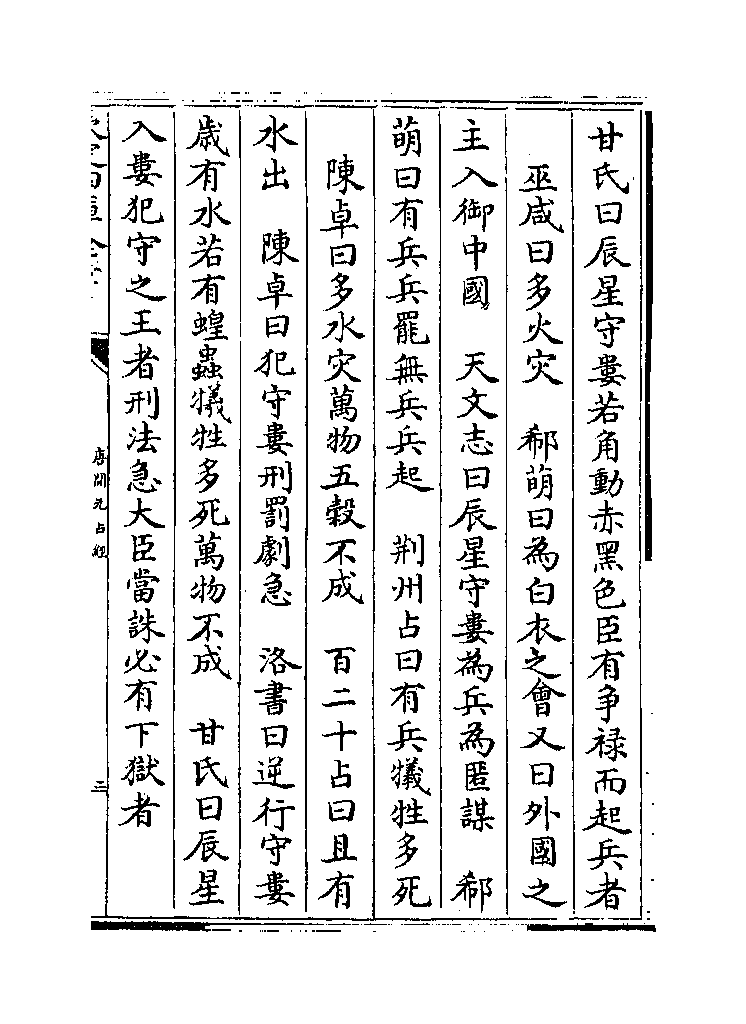 甘氏曰辰星守婁若角動赤黑色臣有争禄而起兵者
巫咸曰多火灾　郗萌曰為白衣之會又曰外國之
主入御中國　天文志曰辰星守婁為兵為匿謀　郗
萌曰有兵兵罷無兵兵起　荆州占曰有兵犧牲多死
陳卓曰多水灾萬物五穀不成　百二十占曰且有
水出　陳卓曰犯守婁刑罰劇急　洛書曰逆行守婁
歳有水若有蝗蟲犧牲多死萬物不成　甘氏曰辰星
入婁犯守之王者刑法急大臣當誅必有下獄者
唐開元占經
三